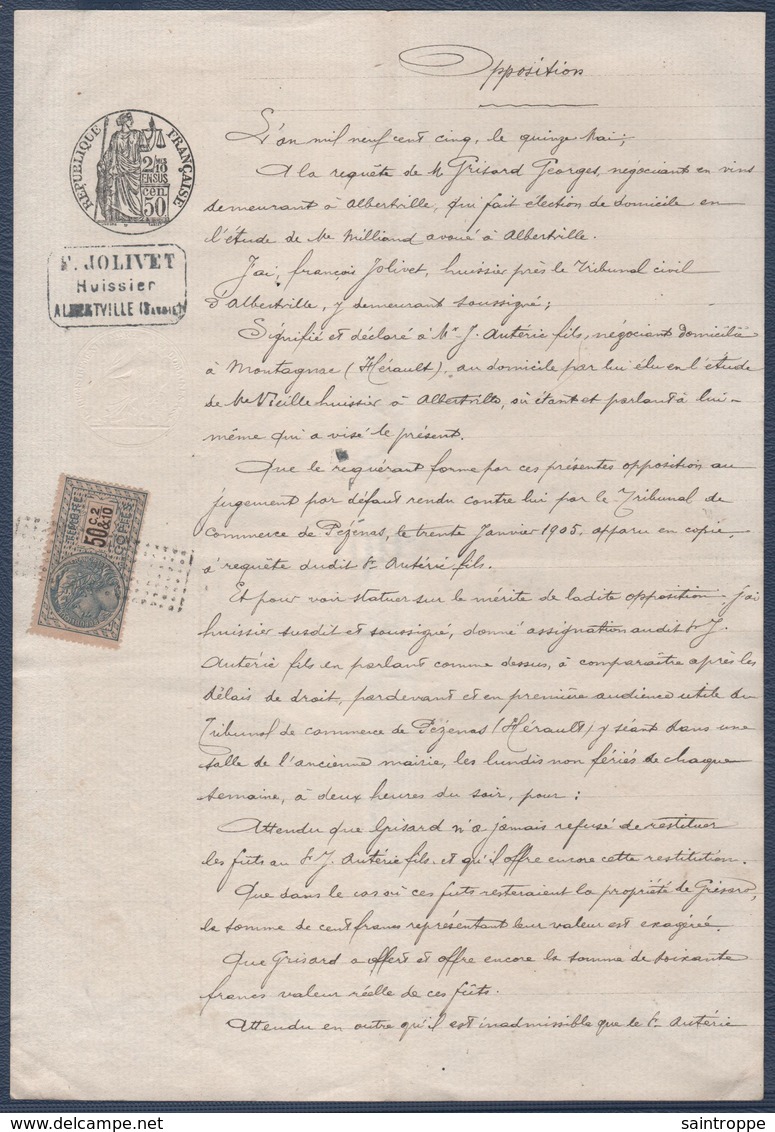 Opposition
RÉPUBLIQUE FRANÇAISE
2/10
EN SUS
50 cen
F. JOLIVET
Huissier
ALBERTVILLE (SAVOIE)
50 C. 2
&10
COPIES
L'an mil neuf cent cinq, le quinze Mai;
A la requête de M Grisard Georges, négociant en vins
demeurant à Albertville, qui fait élection de domicile en
l'étude de Me Milliand avoué à Albertville.
J'ai, françois Jolivet, huissier près le Tribunal civil
d'Albertville, y demeurant soussigné;
Signifié et déclaré à Mr J. Autéric fils, négociant domicilié
à Montagnac (Hérault), au domicile par lui élu en l'étude
de Me Vieille huissier à Albertville, où étant et parlant à lui-
même qui a visé le présent.
Que le requérant forme par ces présentes opposition au
jugement par défaut rendu contre lui par le Tribunal de
commerce de Pézenas, le trente Janvier 1905, apparu en copie,
à requête dudit Sr Autéric fils.
Et pour voir statuer sur le mérite de ladite opposition j'ai
huissier susdit et soussigné, donné assignation audit Sr J.
Autéric fils en parlant comme dessus, à comparaître après les
délais de droit, pardevant et en première audience utile du
Tribunal de commerce de Pézenas (Hérault) y séant dans une
salle de l'ancienne mairie, les lundis non fériés de chaque
semaine, à deux heures du soir, pour:
Attendu que Grisard n'a jamais refusé de restituer
les fûts au Sr J. Autéric fils et qu'il offre encore cette restitution.
Que dans le cas où ces futs resteraient la propriété de Grisard,
la somme de cent francs représentant leur valeur est exagérée.
Que Grisard a offert et offre encore la somme de soixante
francs valeur réelle de ces fûts.
Attendu en outre qu'il est inadmissible que le Sr Autéric
saintroppe